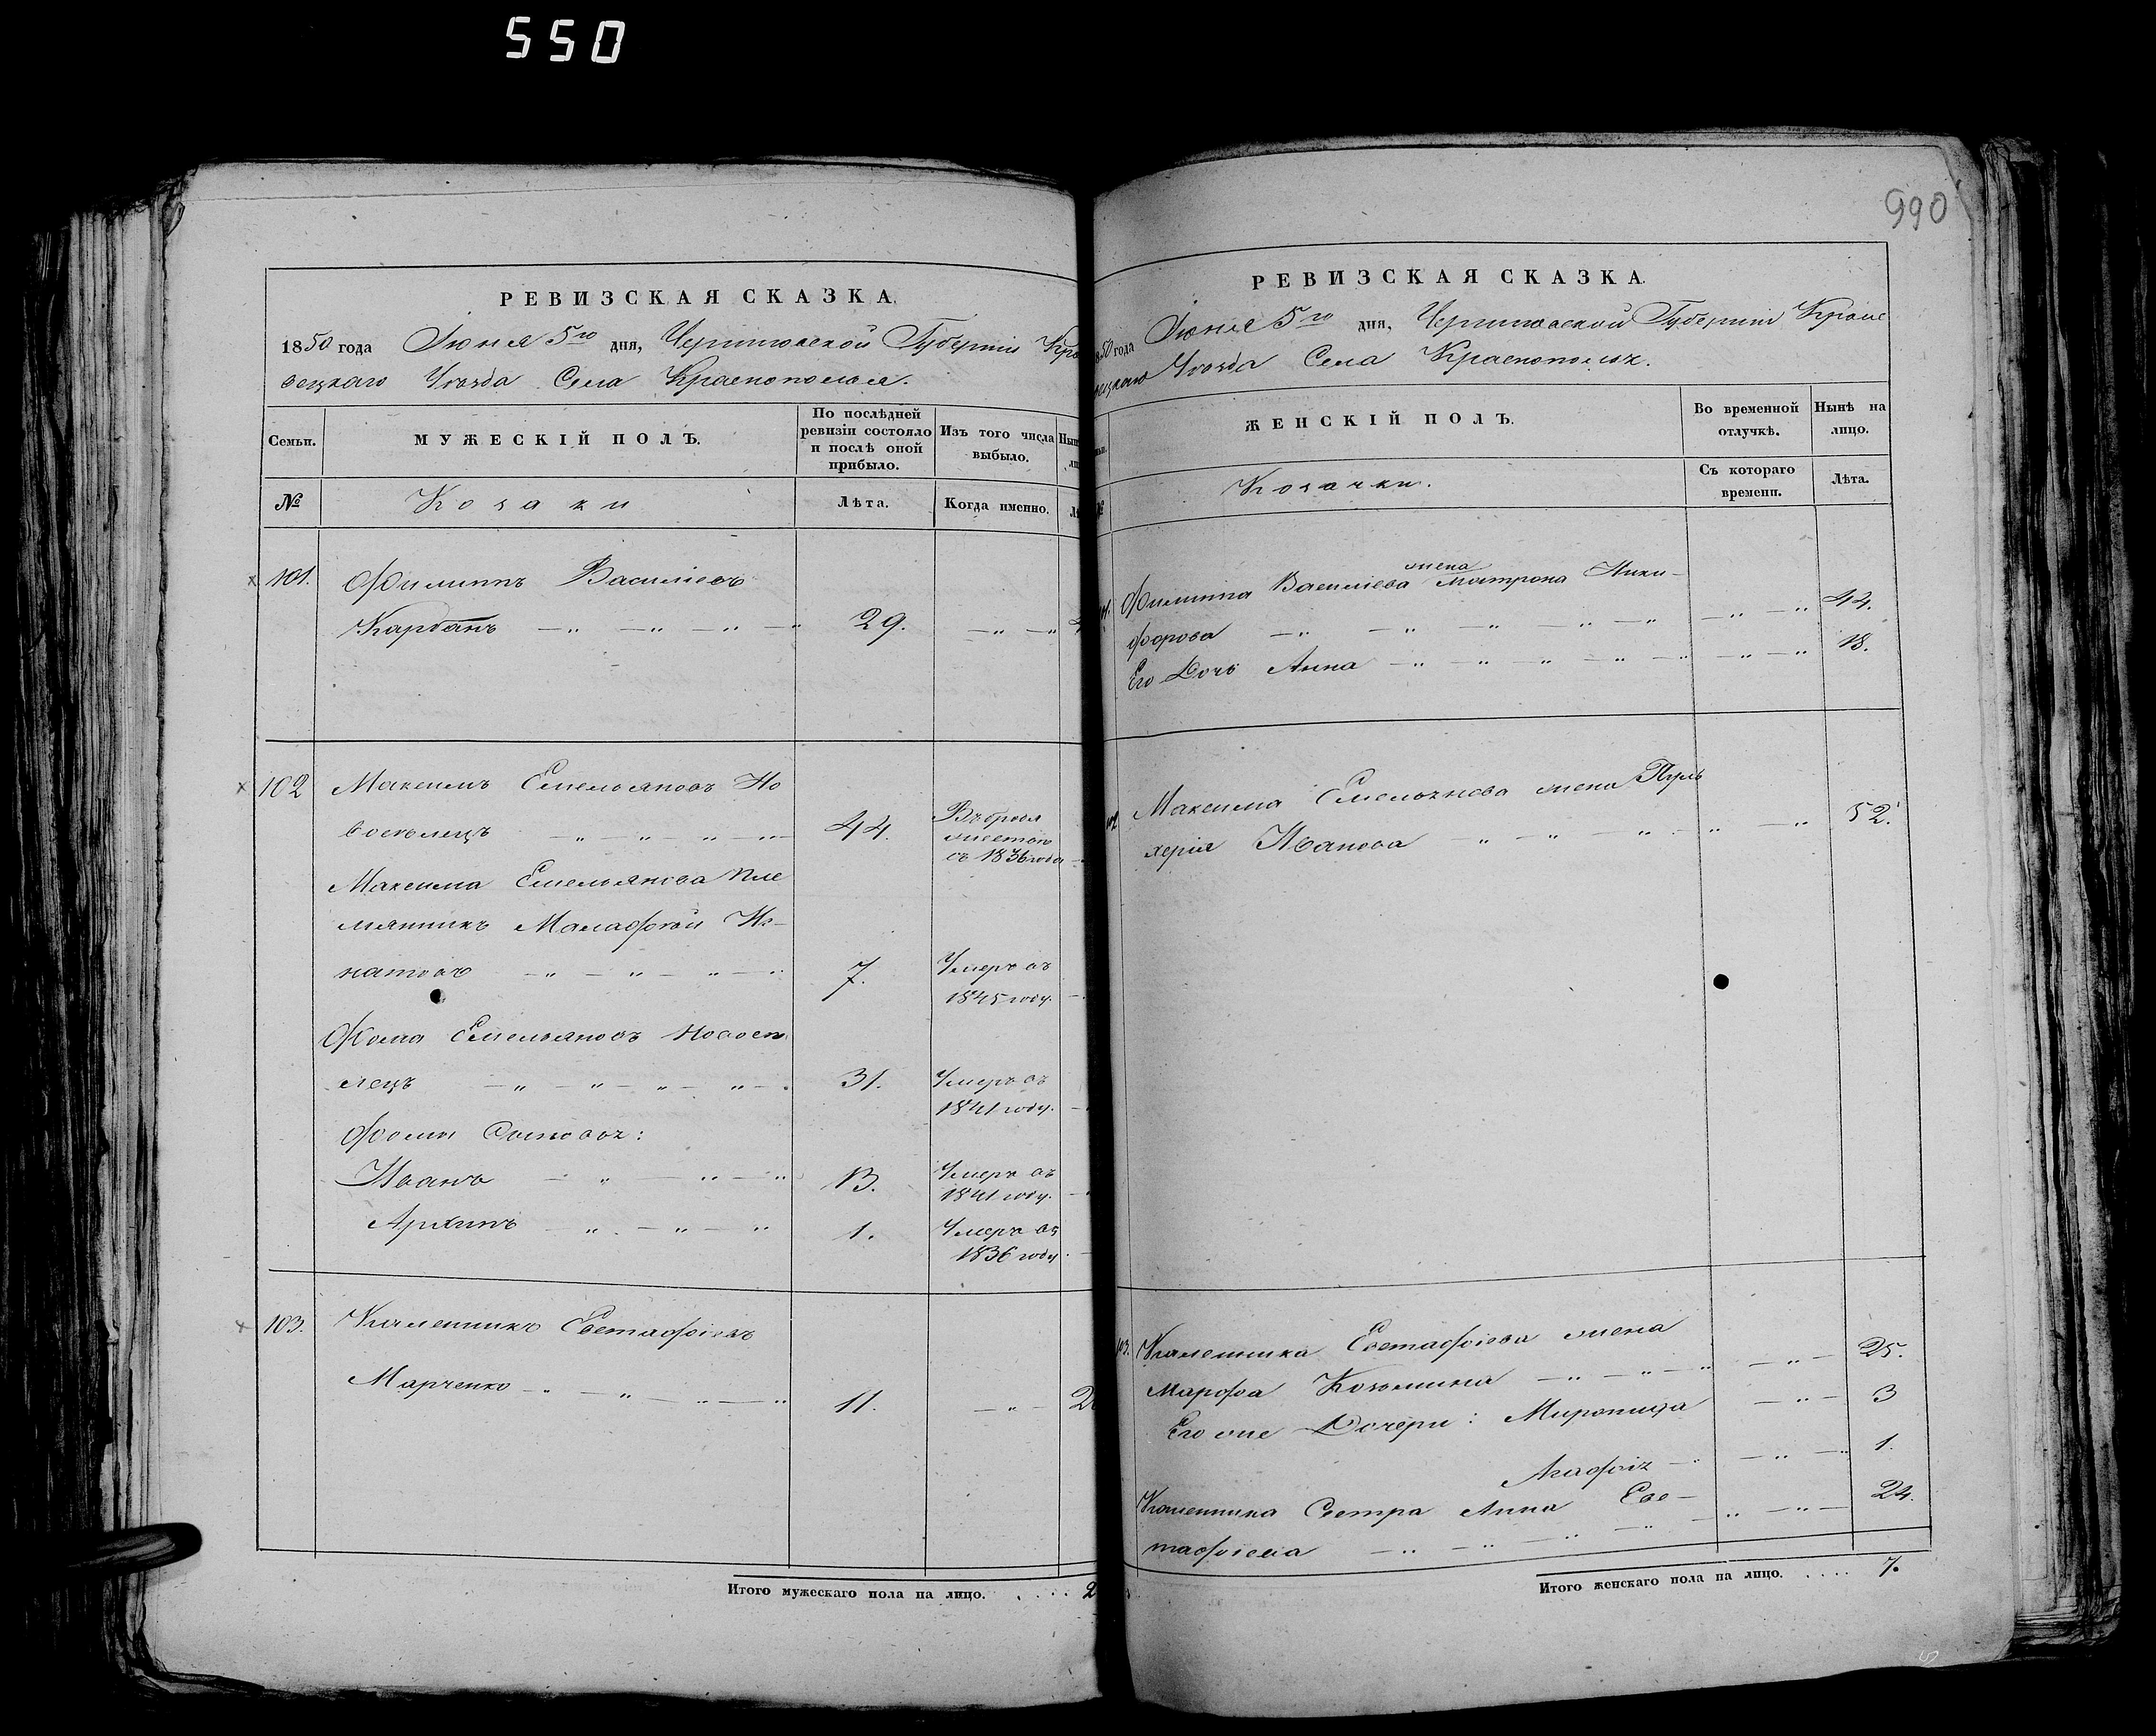 550
990
РЕВИЗСКАЯ СКАЗКА.
1850 года Іюня 5го дня, Черниговской Губерніи Кро
вецкаго Уѣзда Села Краснополья.
Семьи.
МУЖЕСКІЙ ПОЛЪ.
По послѣдней
ревизіи состояло
и послѣ оной
прибыло.
Изъ того числа
выбыло.
№
Козаки
Лѣта.
Когда именно.
101. Филиппъ Васильевъ
Карбанъ 29.
102 Максимъ Емельяновъ Но
восѣлецъ 44.
с 1836 года
Максима Емельянова пле
мянникъ Малафѣй Иг-
натовъ 7. Умеръ въ
1845 году.
Фома Емельяновъ Новосѣ
лецъ 31. Умеръ въ
1841 году.
Фомы Сыновья:
Иванъ 13. Умеръ въ
1841 году.
Архипъ 1. Умеръ въ
1836 году
103. Калленикъ Евстафіевъ
Марченко 11. 2
Итого мужескаго пола на лицо. .... 2
РЕВИЗСКАЯ СКАЗКА.
1850 года Іюня 5го дня, Черниговской Губерніи Кроле
вецкаго Уѣзда Села Краснополья.
ЖЕНСКІЙ ПОЛЪ.
Во временной
отлучкѣ.
Нынѣ на
лицо.
№
Козачки.
Съ котораго
времени.
Лѣта.
жена
Филиппа Васильева Матрона Ники-
форова 44.
Его Дочь Анна 18.
102 Максима Емельянова жена Пуль
херія Иванова 52.
103. Калленика Евстафіева жена
Марфа Козьмина 25.
Его же Дочери: Мирониха 3
Агафія 1.
Калленика Сестра Анна Евс-
тафіева 24.
Итого женскаго пола на лицо. .... 7.